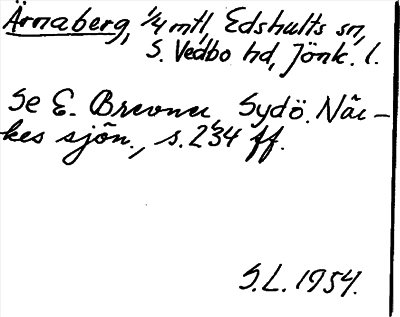 Ärnaberg, 1/4 mtl, Edshults sn,
S. Vedbo hd, Jönk. l.
Se E. Brevner, Sydö. När-
kes sjön., s. 234 ff.
S.L. 1954.